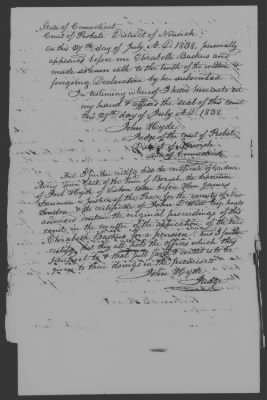 State of Connecticut
Court of Probate District of Norwich
On this 27th day of July A.D. 1838. personally
appeared before me Elizabeth Backus and
made solemn oath to the truth of the within &
foregoing Declaration by her subscribed
In testimony whereof I hereto set
my hand & affixed the seal of this court
this 27th day of July A.D. 1838
John Hyde
Judge of the Court of Probate
District of Norwich
State of Connecticut
And I further certify that the certificate of Gardner
Town Clerk of the Town of Bozrah, the deposition
of taken before James
a Justice of the Peace for the county of New
London & the certificate of John hereto
annexed contain the original proceedings of this
court in the matter of the application of the said
Elizabeth Backus for a pension And I further
certify that they all hold the offices which they
& that full faith & credit is to be
given to their doings in the premises
John Hyde
Judge